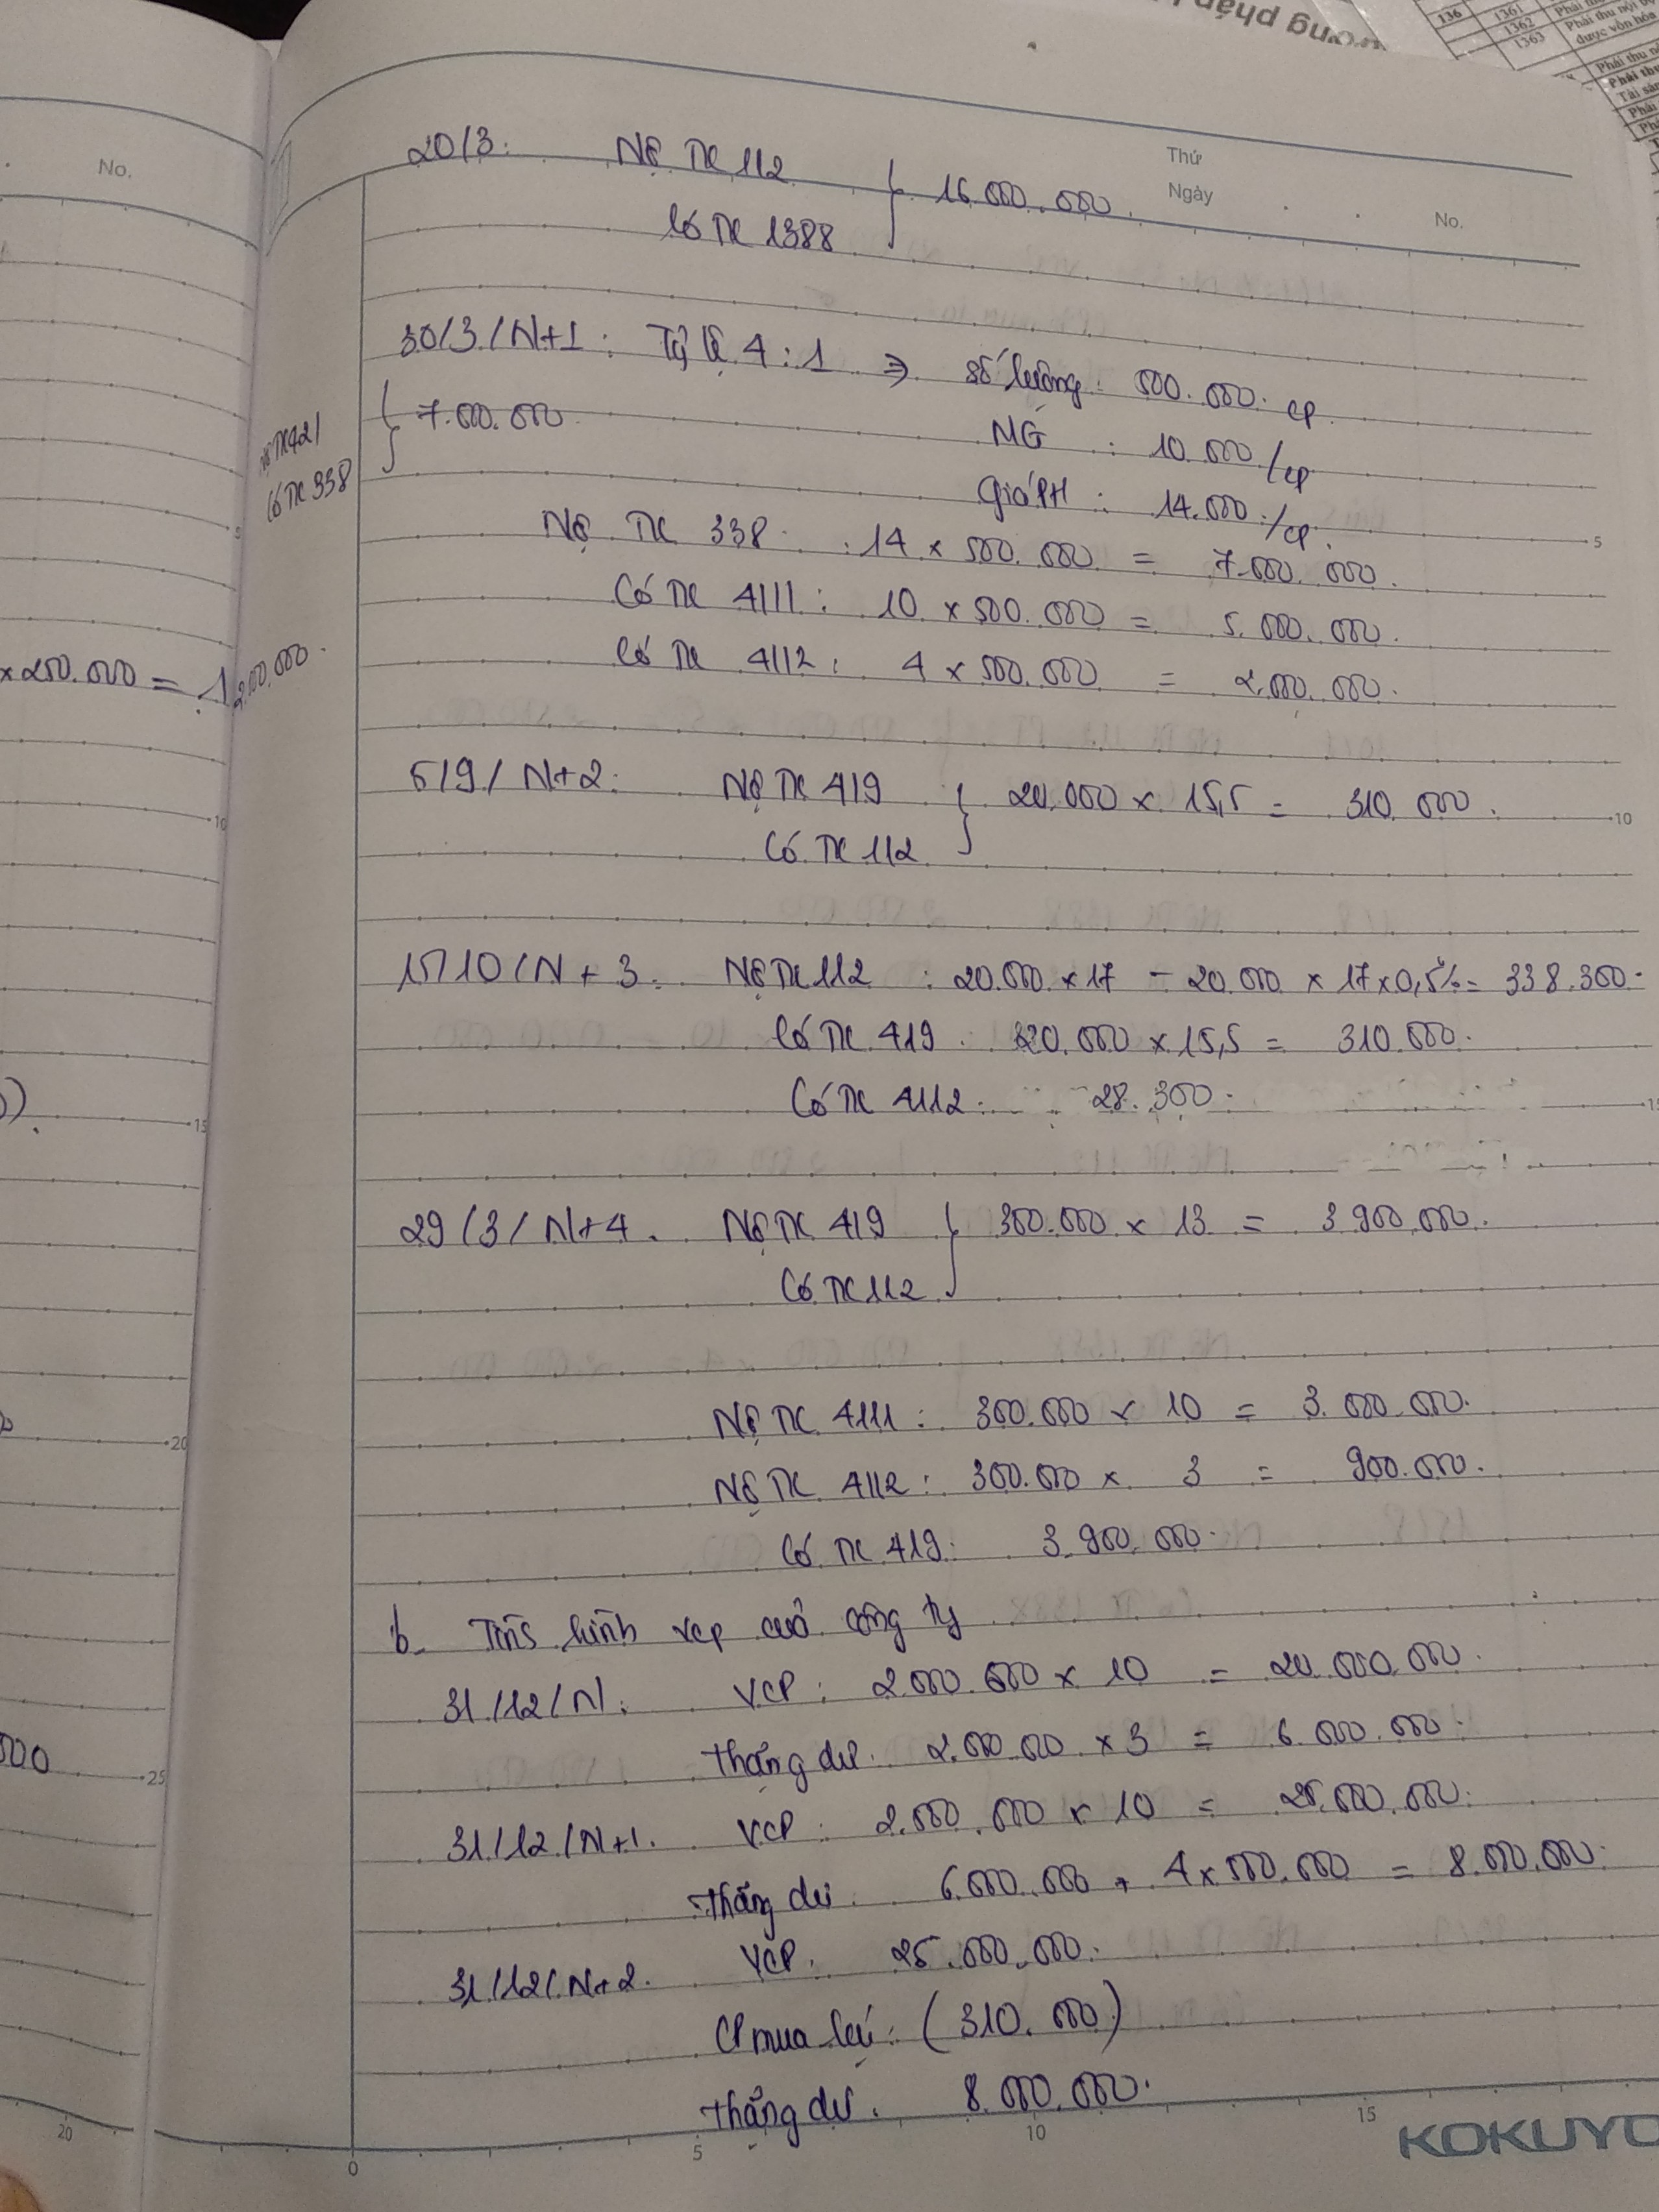 ương phận
136 1361 Phải thu
1362 Phải thu nội bộ
1363 được vốn hóa
Phải thu nộ
Phải thu
Tài sản
Phải
No.
Thứ
Ngày
No.
20/3: Nợ TK 112 } 16.000.000.
Có TK 1388
30/3/N+1: Tỷ lệ 4:1 ⇒ số lượng: 500.000. cp
Nợ TK 421 } 7.000.000
Có TK 338
MG : 10.000/cp
Giá PH : 14.000/cp.
Nợ TK 338 : 14 × 500.000 = 7.000.000.
Có TK 4111: 10 × 500.000 = 5.000.000.
Có TK 4112: 4 × 500.000 = 2.000.000.
× 250.000 = 1.200.000.
5/9/N+2: Nợ TK 419 } 20.000 × 15,5 = 310.000.
Có TK 112
15/10/N+3. Nợ TK 112 : 20.000 × 17 - 20.000 × 17 × 0,5% = 338.300.
Có TK 419 20.000 × 15,5 = 310.000.
Có TK 4112. 28.300.
29/3/N+4. Nợ TK 419 } 300.000 × 13 = 3.900.000.
Có TK 112
Nợ TK 4111: 300.000 × 10 = 3.000.000.
Nợ TK 4112: 300.000 × 3 = 900.000.
Có TK 419: 3.900.000.
b. Tình hình VCP của công ty
31/12/N: VCP: 2.000.000 × 10 = 20.000.000.
Thặng dư. 2.000.000 × 3 = 6.000.000.
31/12/N+1. VCP: 2.500.000 × 10 = 25.000.000.
Thặng dư 6.000.000 + 4 × 500.000 = 8.000.000.
31/12/N+2. VCP. 25.000.000.
CP mua lại: (310.000)
Thặng dư. 8.000.000.
000
5
10
15
20
25
5
10
15
20
0
5
10
15
KOKUYO